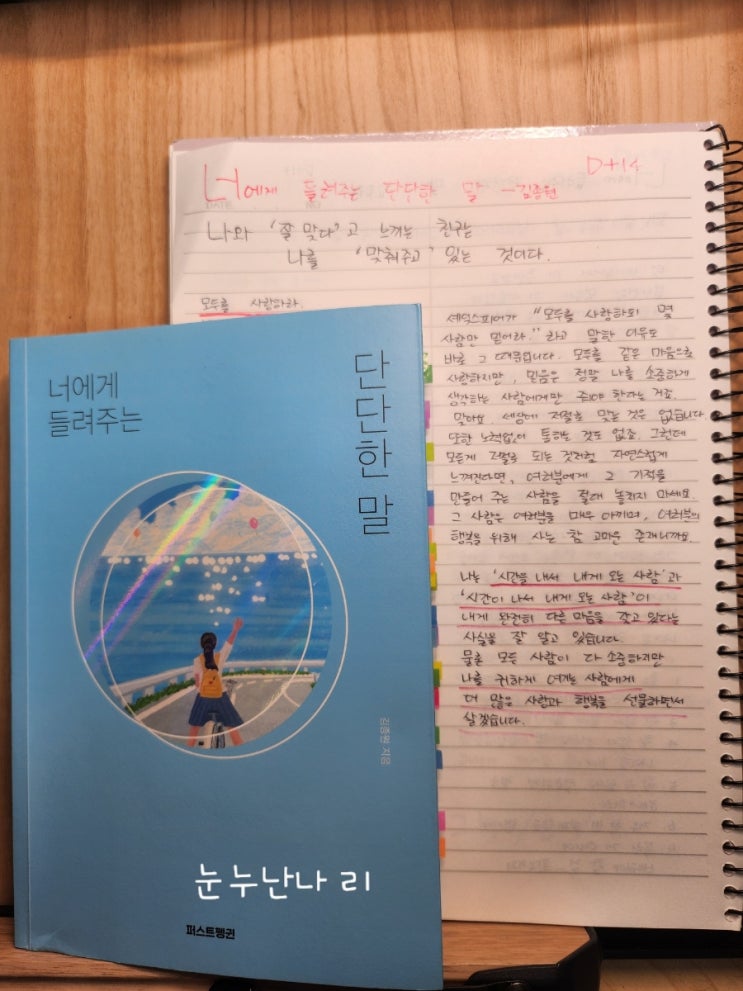 너에게 들려주는 단단한 말 - 김종원
D+14
나와 '잘 맞다'고 느끼는 친구는
나를 '맞춰주고' 있는 것이다.
모두를 사랑하라.
셰익스피어가 "모두를 사랑하되 몇
사람만 믿어라."라고 말한 이유도
바로 그 때문입니다. 모두를 같은 마음으로
사랑하지만, 믿음은 정말 나를 소중하게
생각하는 사람에게만 줘야 한다는 거죠.
맞아요. 세상에 저절로 맞는 것은 없습니다.
또한 노력없이 통하는 것도 없죠. 그런데
모든게 그렇게 되는 것처럼 자연스럽게
느껴진다면, 여러분에게 그 기적을
만들어 주는 사람을 절대 놓치지 마세요.
그 사람은 여러분을 매우 아끼며, 여러분의
행복을 위해 사는 참 고마운 존재니까요.
나는 '시간을 내서 내게 오는 사람'과
'시간이 나서 내게 오는 사람'이
내게 완전히 다른 마음을 갖고 있다는
사실을 잘 알고 있습니다.
물론 모든 사람이 다 소중하지만
나를 귀하게 여기는 사람에게
더 많은 사랑과 행복을 선물하면서
살겠습니다.
너에게
들려주는
단단한 말
김종원 지음
눈누난나 리
퍼스트펭귄